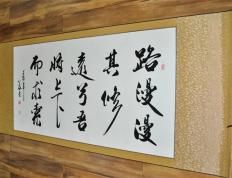 路漫漫
其修
远兮吾
将上下
而求索